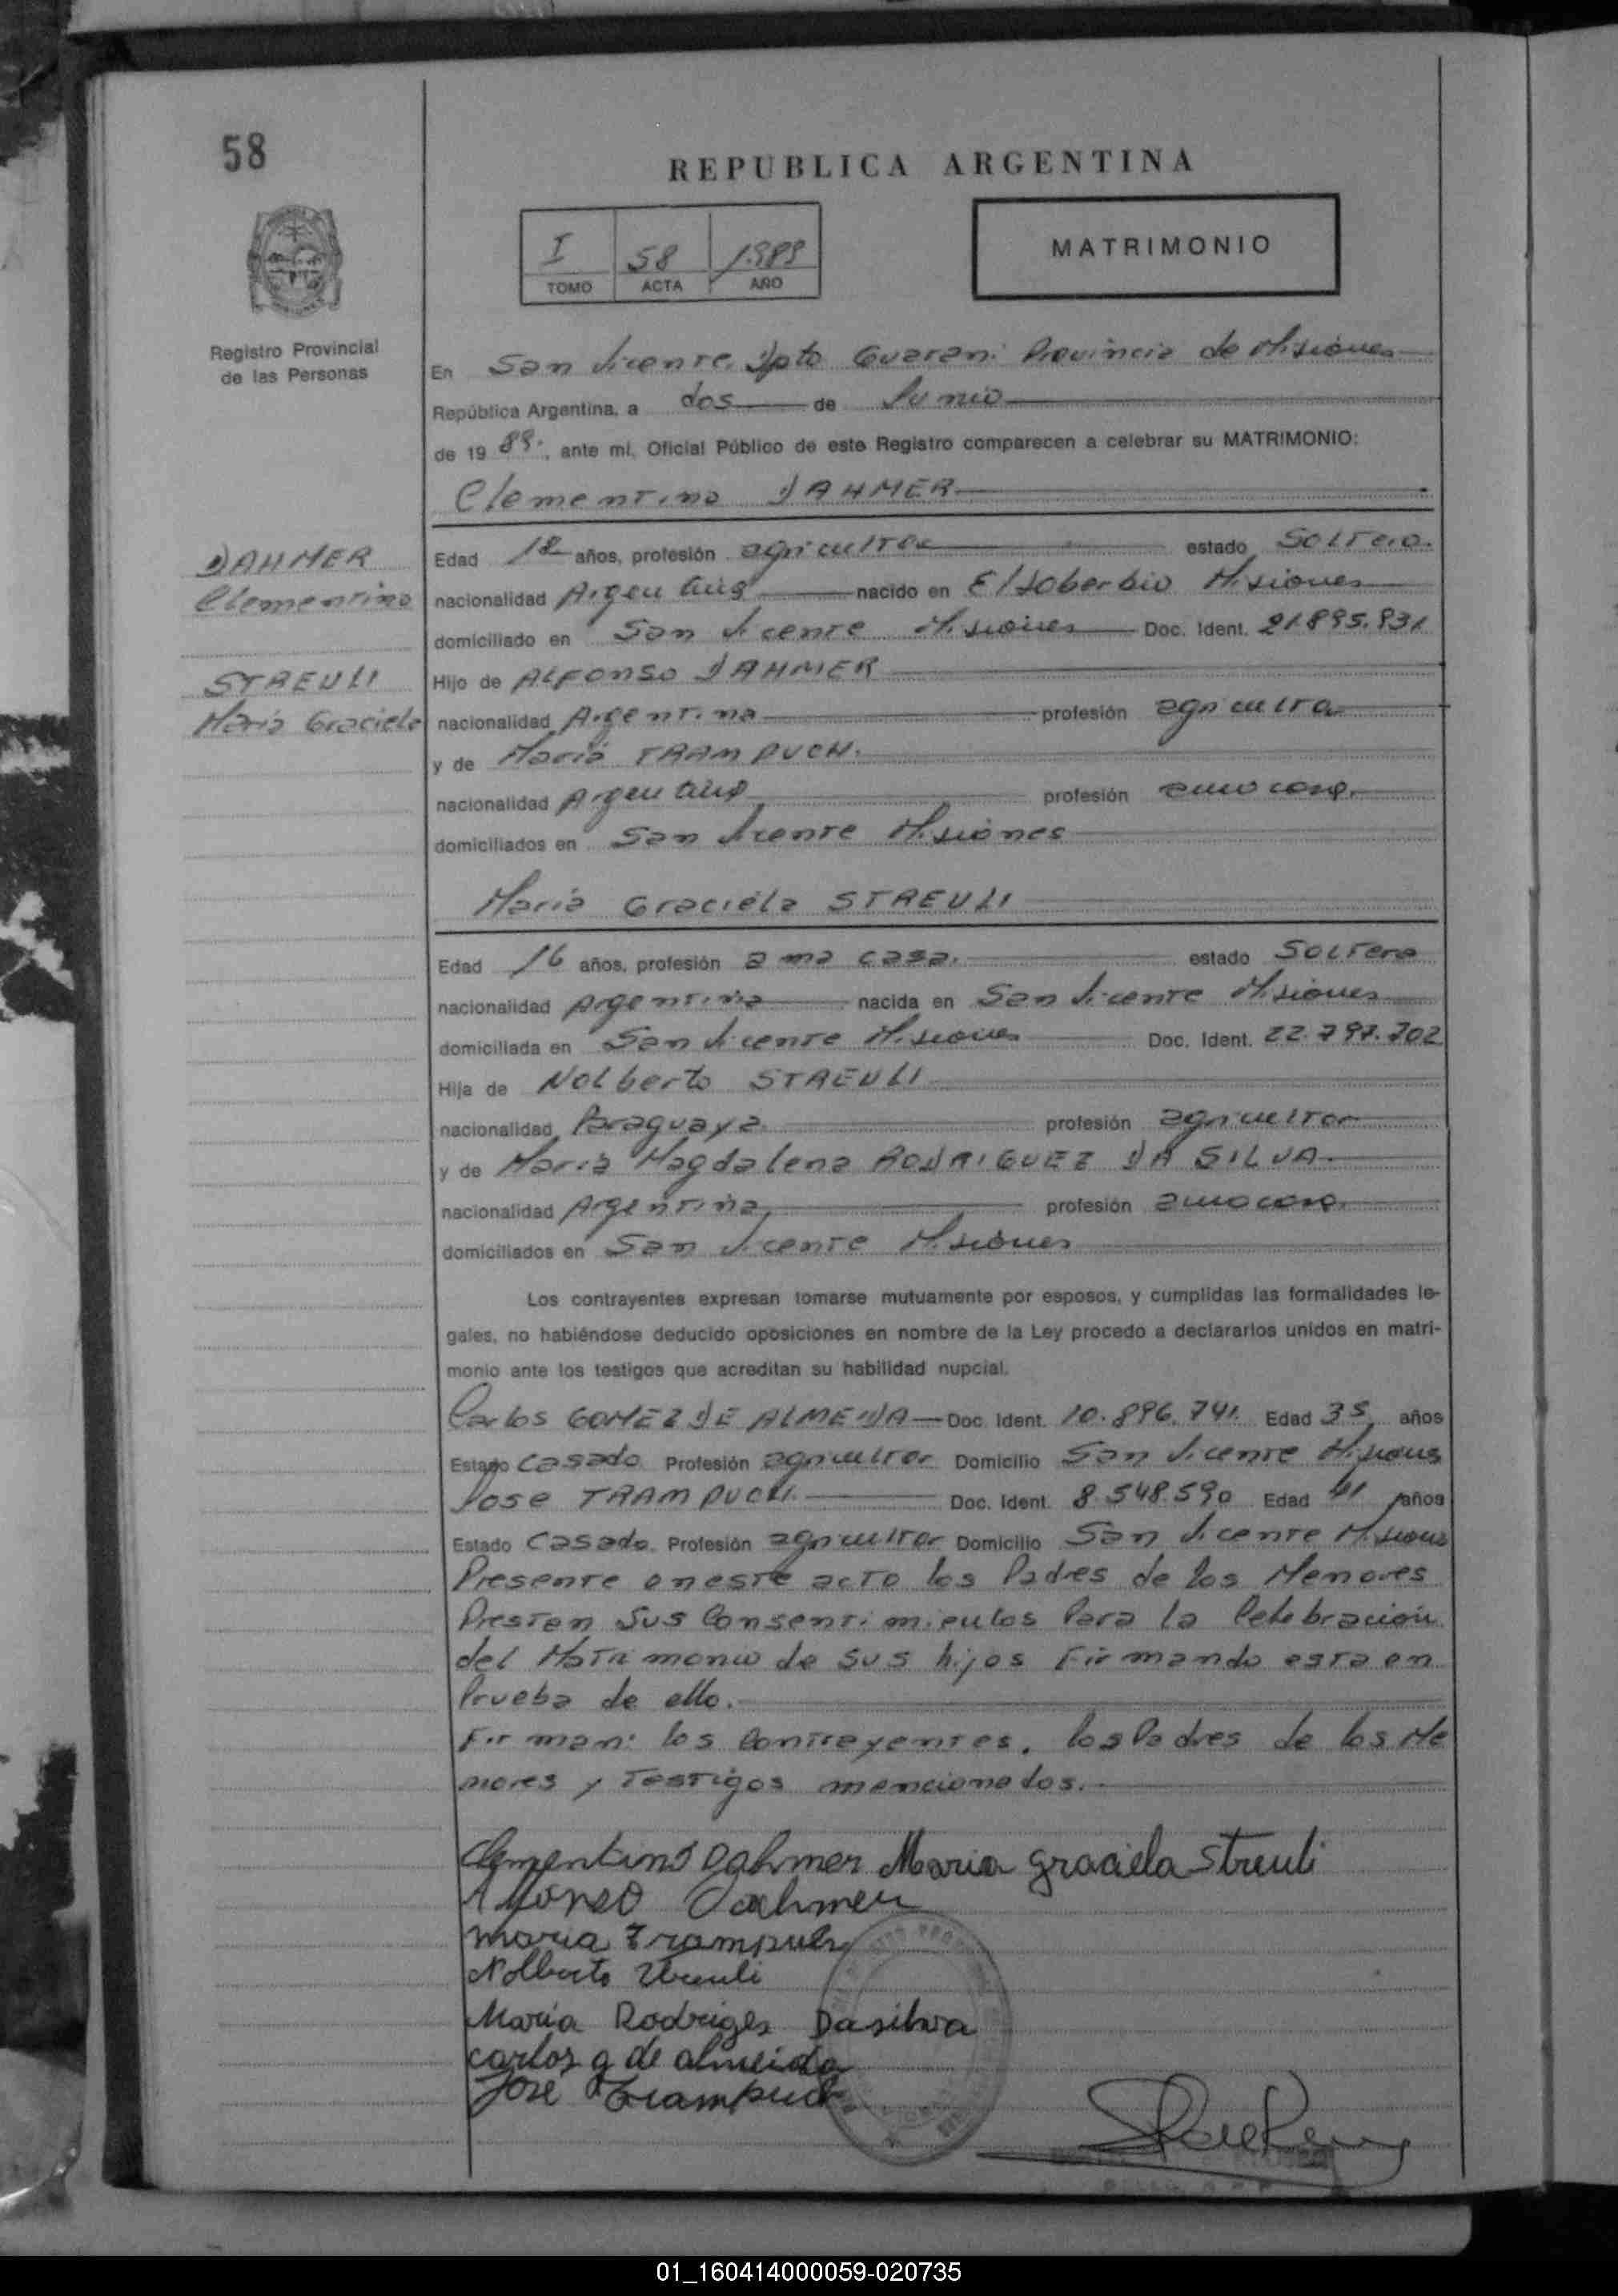 58
REPUBLICA ARGENTINA
I 58 1989
TOMO ACTA AÑO
MATRIMONIO
Registro Provincial
de las Personas
En San Vicente Dpto Guarani Provincia de Misiones
República Argentina, a dos de Junio
de 19 89, ante mi, Oficial Público de este Registro comparecen a celebrar su MATRIMONIO:
Clementino DAHMER
DAHMER
Clementino
STREULI
Maria Graciela
Edad 18 años, profesión agricultor estado Soltero.
nacionalidad Argentina nacido en El Soberbio Misiones
domiciliado en San Vicente Misiones Doc. Ident. 21.895.831
Hijo de ALFONSO DAHMER
nacionalidad Argentina profesión agricultor
y de Maria TRAMPUCH.
nacionalidad Argentina profesión ama casa.
domiciliados en San Vicente Misiones
Maria Graciela STREULI
Edad 16 años, profesión ama casa. estado Soltera
nacionalidad Argentina nacida en San Vicente Misiones
domiciliada en San Vicente Misiones Doc. Ident. 22.797.702
Hija de Nolberto STREULI
nacionalidad Paraguaya profesión agricultor
y de Maria Magdalena RODRIGUEZ DA SILVA
nacionalidad Argentina profesión ama casa.
domiciliados en San Vicente Misiones
Los contrayentes expresan tomarse mutuamente por esposos, y cumplidas las formalidades le-
gales, no habiéndose deducido oposiciones en nombre de la Ley procedo a declararlos unidos en matri-
monio ante los testigos que acreditan su habilidad nupcial.
Carlos GOMEZ DE ALMEIDA Doc. Ident. 10.896.741. Edad 35 años
Estado Casado Profesión agricultor Domicilio San Vicente Misiones
Jose TRAMPUCH. Doc. Ident. 8.548.590 Edad 41 años
Estado Casado Profesión agricultor Domicilio San Vicente Misiones
Presente en este acto los Padres de los Menores
Presten Sus Consentimientos Para la Celebración
del Matrimonio de sus hijos Firmando esta en
Prueba de ello.
Firman: los Contrayentes, los Padres de los Me
nores y Testigos mencionados.
Clementino Dahmer Maria graciela Streuli
Alfonso Dahmer
maria Trampuch
Nolberto Streuli
Maria Rodriges Dasilva
carlos g de almeida
José Trampuch
01_160414000059-020735